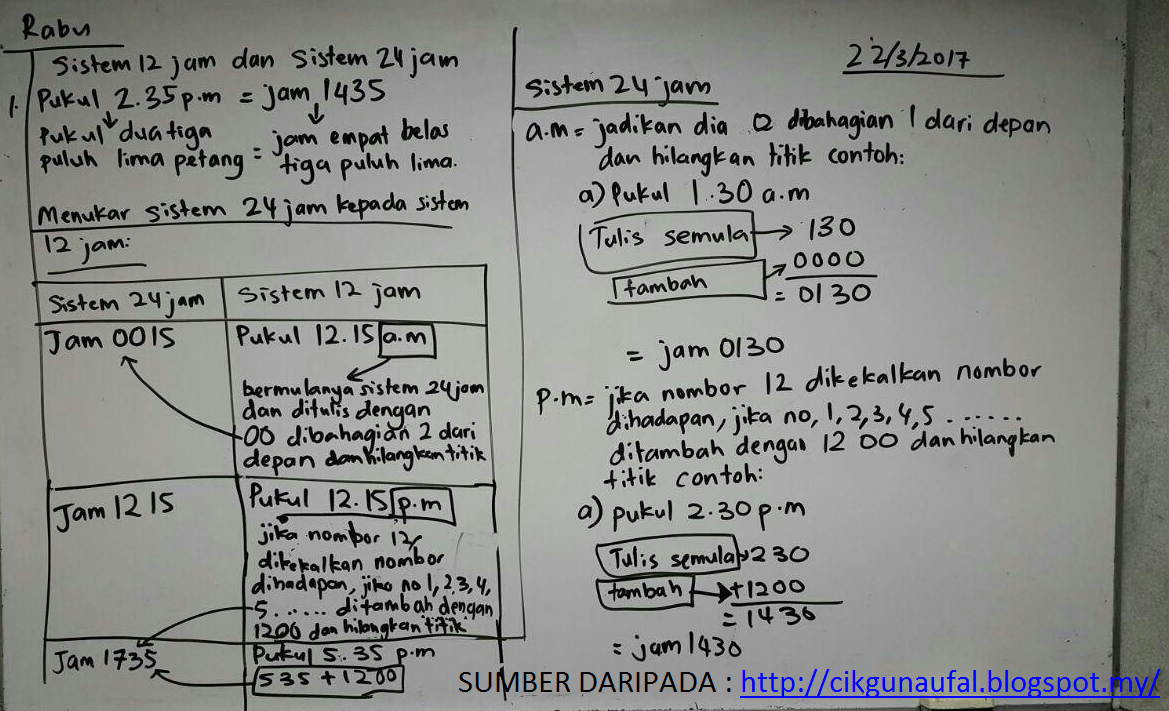 Rabu
Sistem 12 jam dan Sistem 24 jam
1. Pukul 2.35 p.m = jam 1435
Pukul dua tiga = jam empat belas
puluh lima petang tiga puluh lima.
Menukar sistem 24 jam kepada sistem
12 jam:
Sistem 24 jam Sistem 12 jam
Jam 0015 Pukul 12.15 a.m
bermulanya sistem 24 jam
dan ditulis dengan
00 dibahagian 2 dari
depan dan hilangkan titik
Jam 1215 Pukul 12.15 p.m
jika nombor 12,
dikekalkan nombor
dihadapan, jika no 1, 2, 3, 4,
5 ...... ditambah dengan
1200 dan hilangkan titik
Jam 1735 Pukul 5.35 p.m
535 + 1200
22/3/2017
Sistem 24 jam
a.m = jadikan dia 0 dibahagian 1 dari depan
dan hilangkan titik contoh:
a) Pukul 1.30 a.m
Tulis semula 130
tambah 0000
= 0130
= jam 0130
P.m = jika nombor 12 dikekalkan nombor
dihadapan, jika no, 1, 2, 3, 4, 5 ......
ditambah dengan 12 00 dan hilangkan
titik contoh:
a) pukul 2.30 p.m
Tulis semula 230
tambah +1200
= 1430
= jam 1430
SUMBER DARIPADA : http://cikgunaufal.blogspot.my/